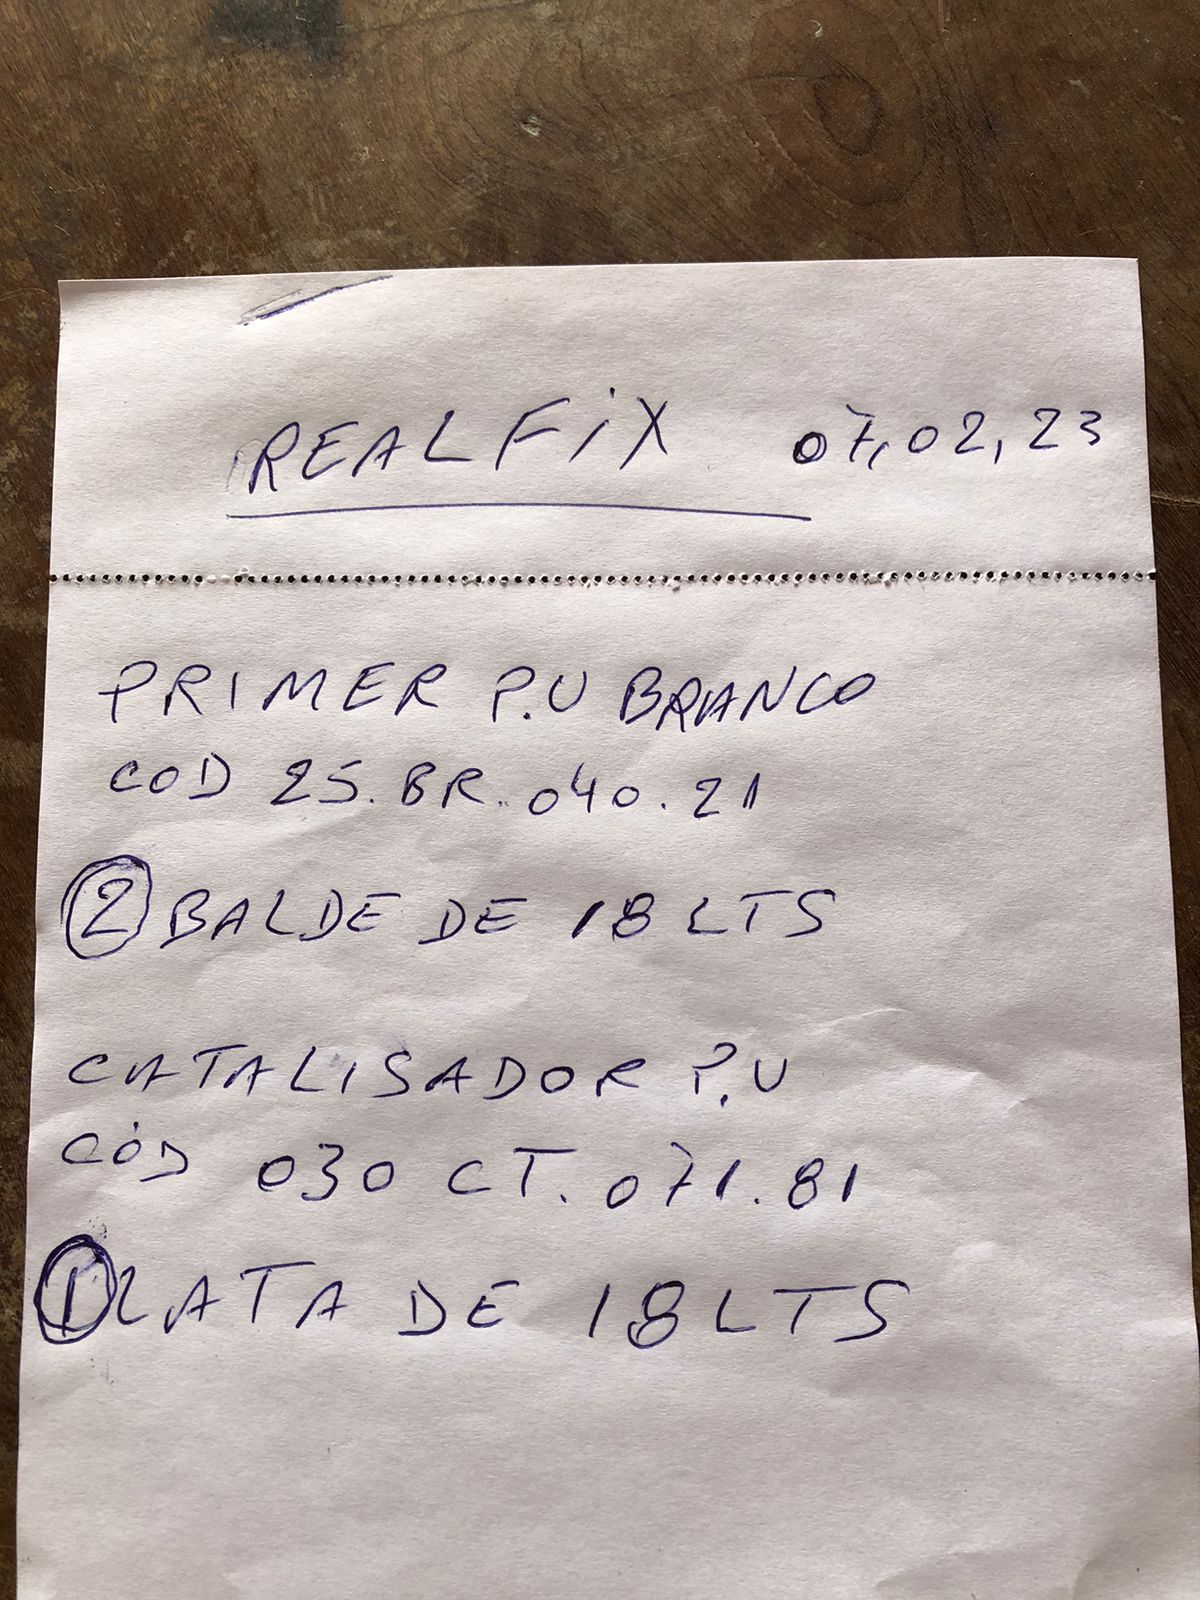 REALFiX 07,02,23
PRIMER P.U BRANCO
COD 25.BR.040.21
2 BALDE DE 18 LTS
CATALISADOR P.U
CÓD 030 CT.071.81
1 LATA DE 18 LTS